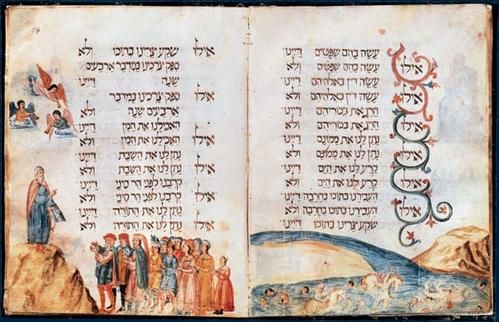 עשה בהם שפטים דיינו
אילו עשה בהם שפטים ולא
עשה דין באלהיהם דיינו
אילו עשה דין באלהיהם ולא
הרג את בכוריהם דיינו
אילו הרג את בכוריהם ולא
נתן לנו את ממונם דיינו
אילו נתן לנו את ממונם ולא
קרע לנו את הים דיינו
אילו קרע לנו את הים ולא
העבירנו בתוכו בחרבה דיינו
אילו העבירנו בתוכו בחרבה ולא
שקע צרינו בתוכו דיינו
אילו שקע צרינו בתוכו ולא
ספק צרכנו במדבר ארבעים
שנה דיינו
אילו ספק צרכנו במדבר
ארבעים שנה ולא
האכלנו את המן דיינו
אילו האכלנו את המן ולא
נתן לנו את השבת דיינו
אילו נתן לנו את השבת ולא
קרבנו לפני הר סיני דיינו
אילו קרבנו לפני הר סיני ולא
נתן לנו את התורה דיינו